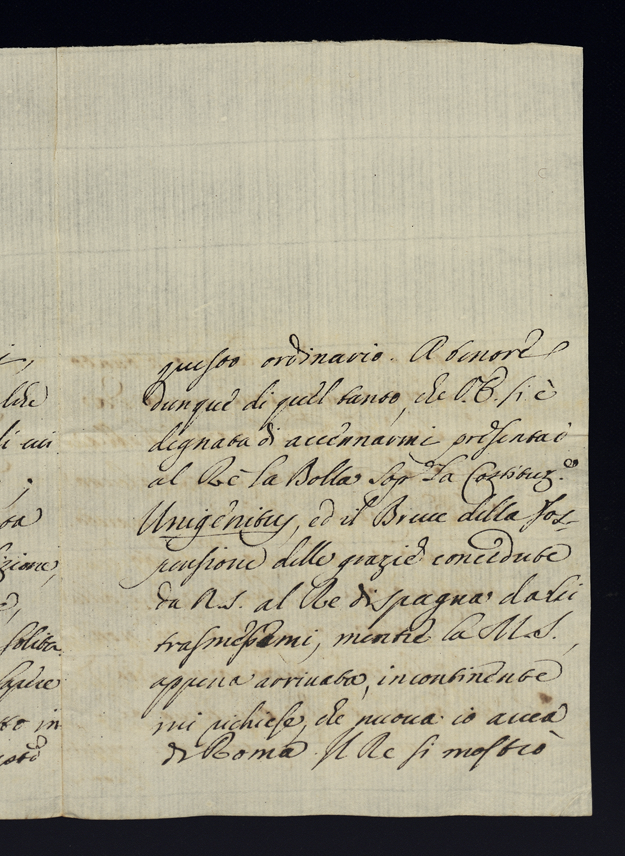 questo ordinario. A tenore
dunque di quel tanto, che V.E. si è
degnata di accennarmi presentai
al Rè la Bolla sop.ª la Costituz.e
Unigenitus, ed il Breve della Sos-
pensione delle grazie concedute
da N.S. al Re di Spagna da Lei
trasmessami, mentre la M.S.,
appena arrivata, incontinente
mi richiese, che nuova io avea
di Roma. Il Re si mostrò
solita
sapere
to in